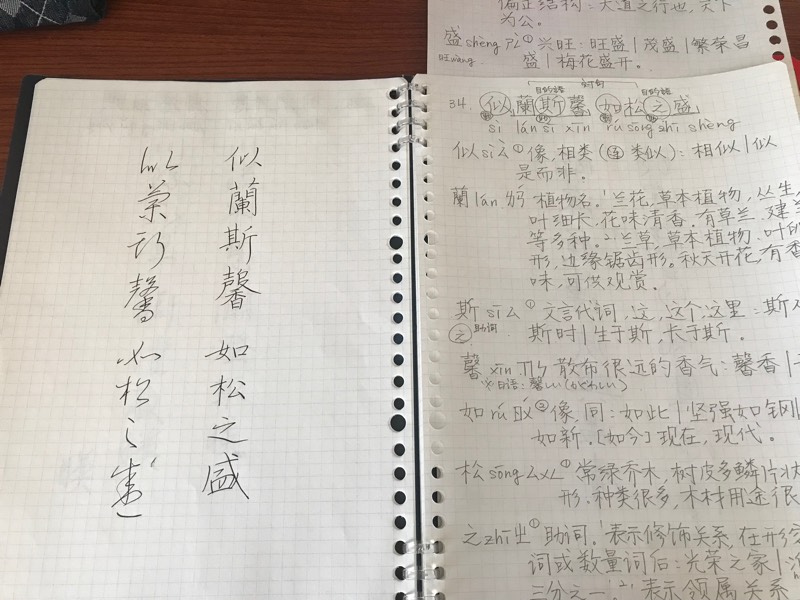 偏正结构：大道之行也，天下
为公。
盛 shèng ㄕㄥˋ ① 兴旺：旺盛｜茂盛｜繁荣昌
旺wàng
盛｜梅花盛开。
似蘭斯馨 如松之盛
似蘭斯馨 如松之盛
目的語 対句 目的語
34. 似蘭斯馨 如松之盛
sì lán sī xīn rú sōng zhī shèng
似 sì ㄙˋ ① 像，相类（连 类似）：相似｜似
是而非。
蘭 lán ㄌㄢˊ 植物名。1 兰花，草本植物，丛生，
叶细长，花味清香。有草兰、建兰
等多种。2 兰草，草本植物，叶卵
形，边缘锯齿形。秋天开花，有香
味，可供观赏。
斯 sī ㄙ ① 文言代词，这，这个，这里：斯人
之 助词
斯时｜生于斯，长于斯。
馨 xīn ㄒㄧㄣ 散布很远的香气：馨香｜
※日语：馨
如 rú ㄖㄨˊ ② 像，同：如此｜坚强如钢
如新。[如今] 现在，现代。
松 sōng ㄙㄨㄥ ① 常绿乔木，树皮多鳞片状
形。种类很多，木材用途很
之 zhī ㄓ ① 助词。1 表示修饰关系，在形容
词或数量词后：光荣之家｜
三分之一。2 表示领属关系